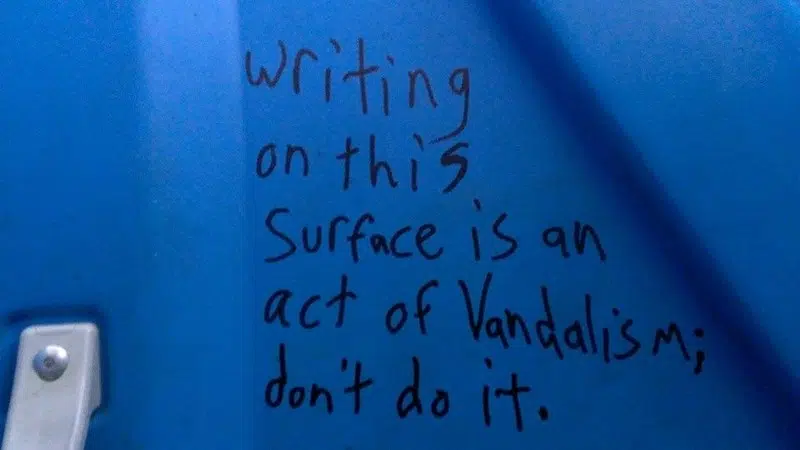 writing
on this
Surface is an
act of Vandalism;
don't do it.